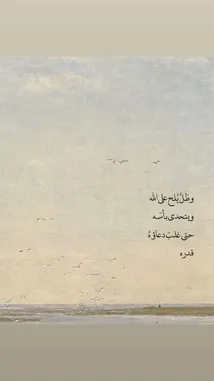 وظلَّ يُلح على الله
ويتحدى بأسه
حتى غلبَ دعاؤهُ
قدره